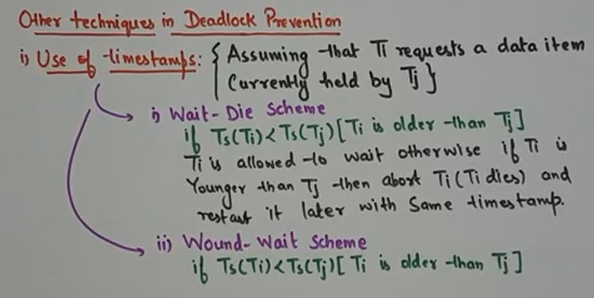 Other techniques in Deadlock Prevention
i) Use of timestamps: { Assuming that Ti requests a data item
Currently held by Tj }
i) Wait-Die Scheme
if Ts(Ti) < Ts(Tj) [Ti is older than Tj]
Ti is allowed to wait otherwise if Ti is
Younger than Tj then abort Ti (Ti dies) and
restart it later with Same timestamp.
ii) Wound-Wait Scheme
if Ts(Ti) < Ts(Tj) [Ti is older than Tj]